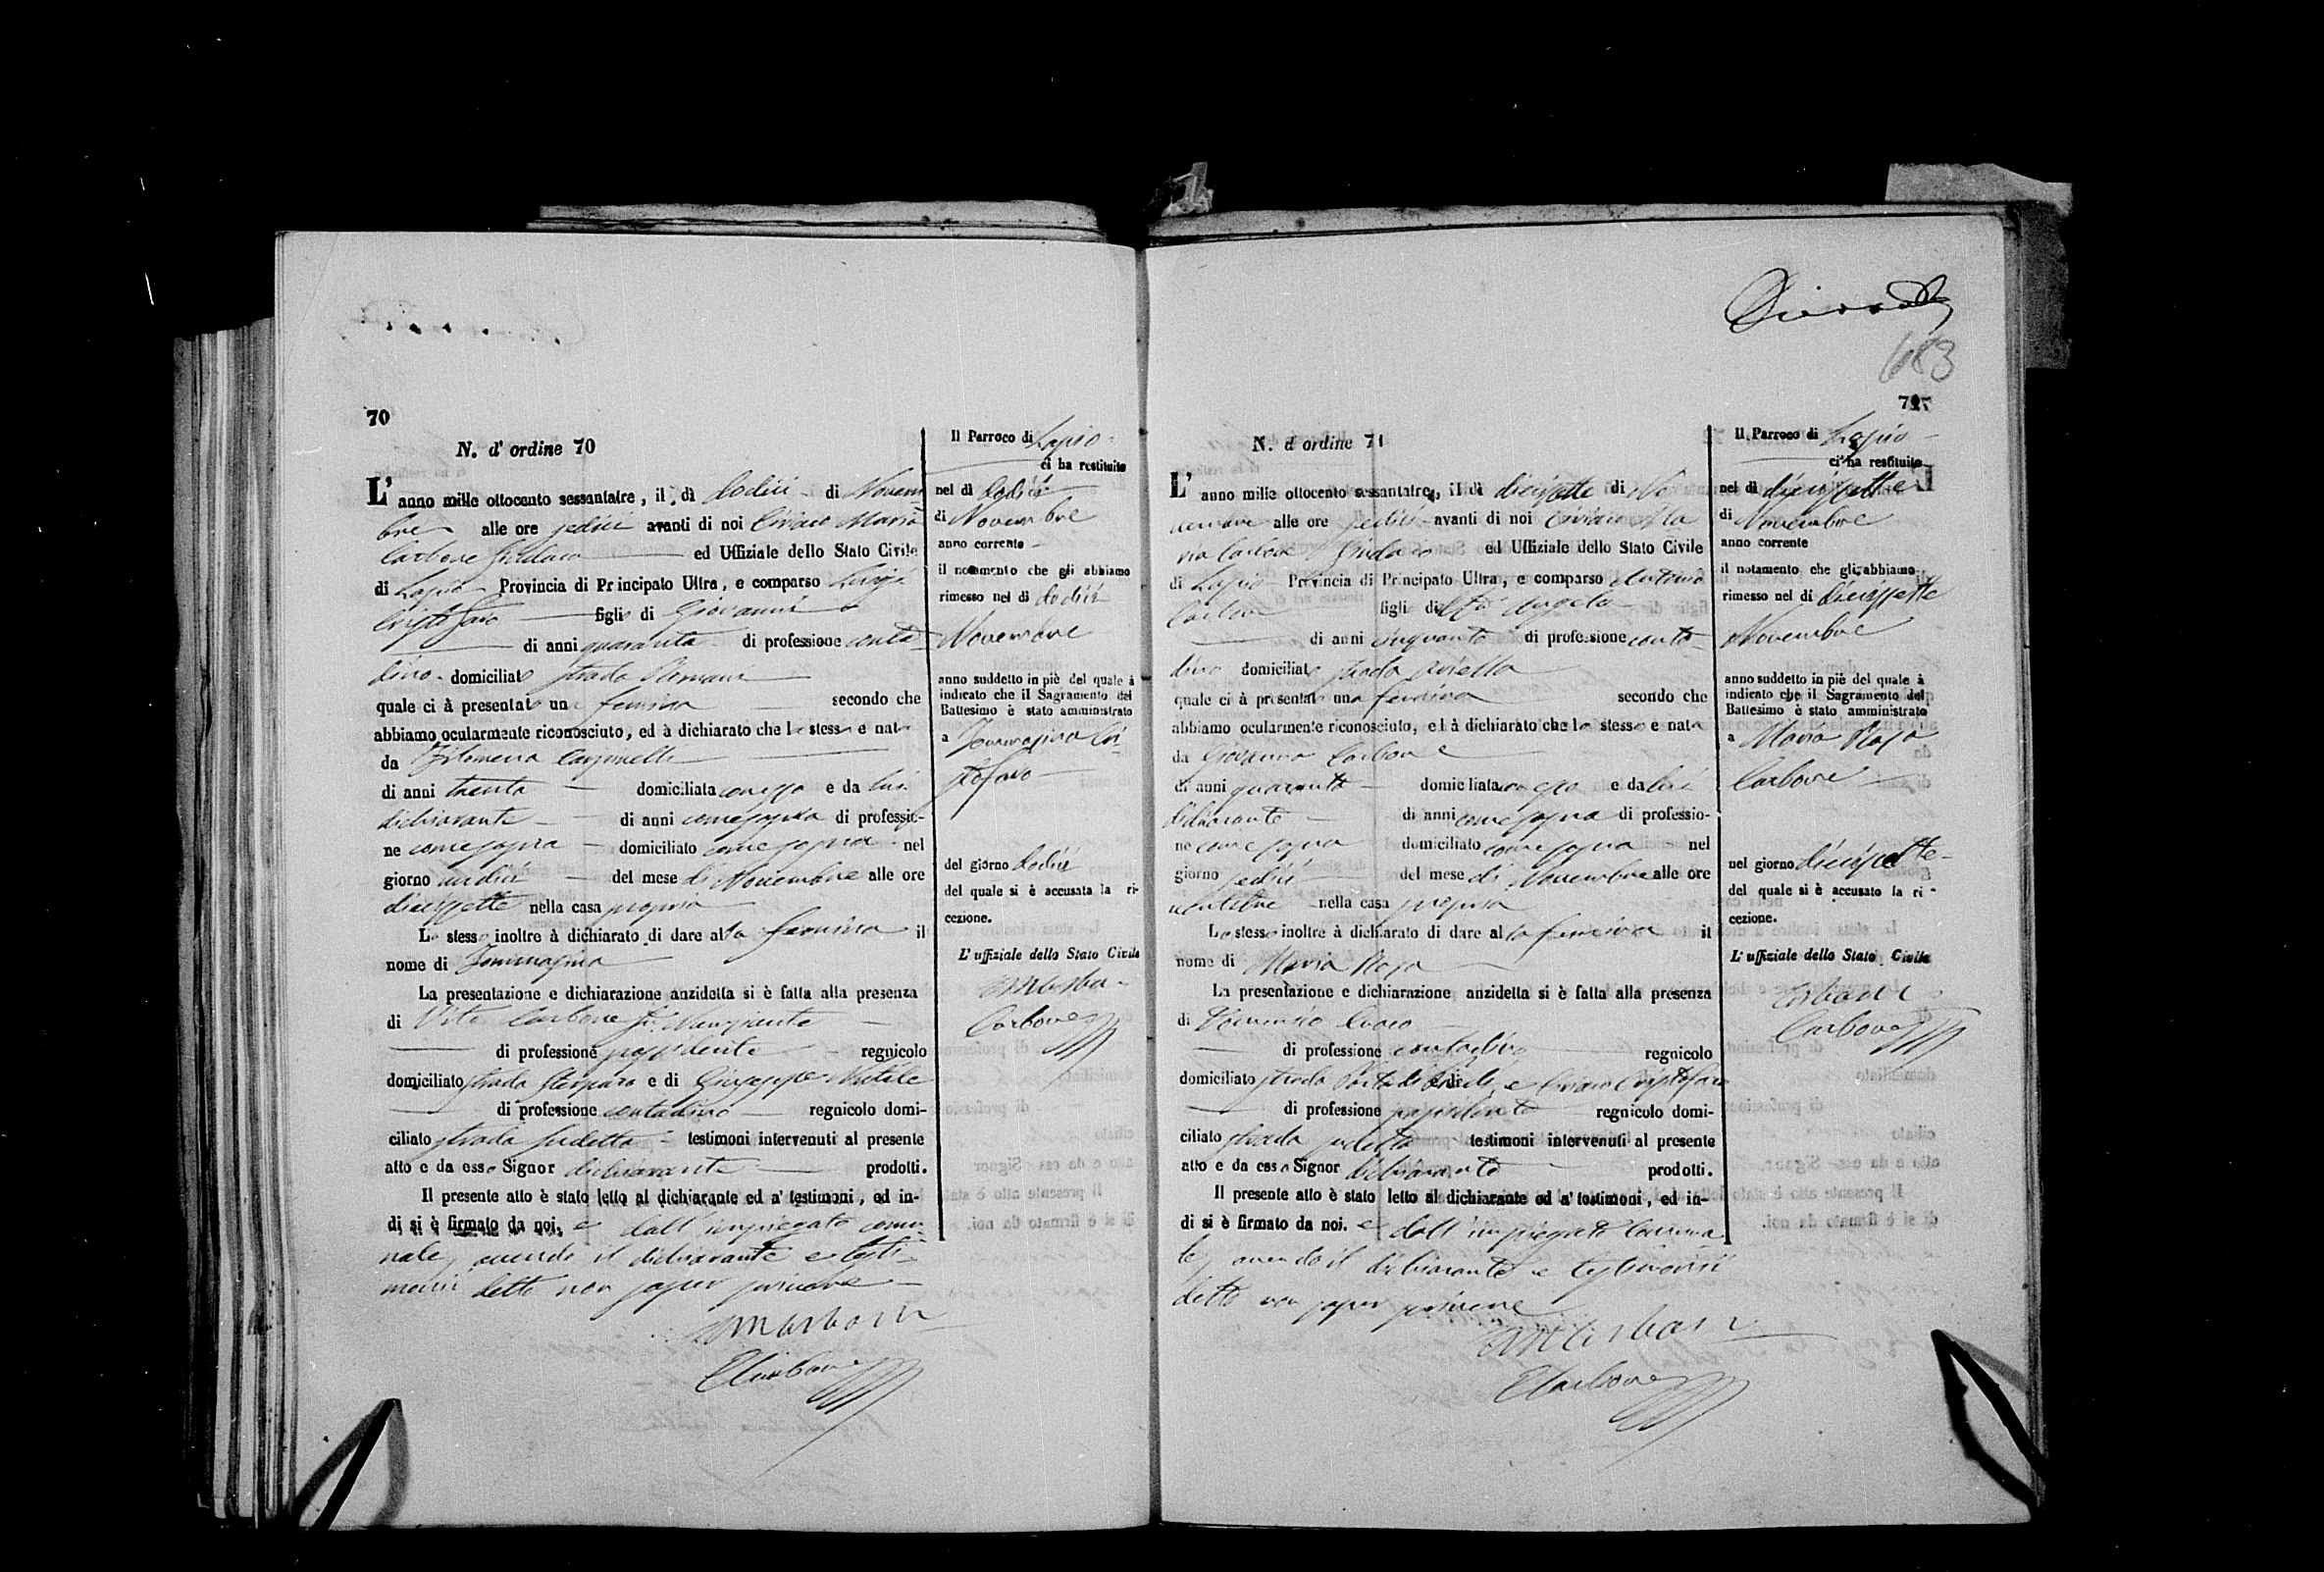 70
N. d'ordine 70
L'anno mille ottocento sessantatre, il dì dodici di Novem
bre alle ore sedici avanti di noi Ciriaco Maria
Carbone Sindaco ed Uffiziale dello Stato Civile
di Lapio Provincia di Principato Ultra, e comparso Luigi
Cristofaro figlio di Giovanni
di anni quaranta di professione conta
dino domiciliato strada
quale ci à presentato una femina secondo che
abbiamo ocularmente riconosciuto, ed à dichiarato che la stessa e nata
da Filomena
di anni trenta domiciliata con esso e da lui
dichiarante di anni come sopra di professio-
ne come sopra domiciliato come sopra nel
giorno undici del mese di Novembre alle ore
diecissette nella casa propria
Lo stesso inoltre à dichiarato di dare alla femina il
nome di Tommasina
La presentazione e dichiarazione anzidetta si è fatta alla presenza
di Vito Carbone fu
di professione possidente regnicolo
domiciliato strada e di Giuseppe
di professione contadino regnicolo domi-
ciliato strada sudetta testimoni intervenuti al presente
atto e da esso Signor dichiarante prodotti.
Il presente atto è stato letto al dichiarante ed a' testimoni, ed in-
di si è firmato da noi, e dall'impiegato comu
nale, avendo il dichiarante e testi-
monii detto non saper scrivere
CMCarbone
Carbone
Il Parroco di Lapio
ci ha restituito
nel dì dodici
di Novembre
anno corrente
il notamento che gli abbiamo
rimesso nel di dodici
Novembre
anno suddetto in piè del quale à
indicato che il Sagramento del
Battesimo è stato amministrato
a Tommasina Cri-
stofaro
del giorno dodici
del quale si è accusata la ri-
cezione.
L'uffiziale dello Stato Civile
CMCarbone
Carbone
683
N. d'ordine 71
L'anno mille ottocento sessantatre, il dì diecissette di No
vembre alle ore sedici avanti di noi Ciriaco Ma
ria Carbone Sindaco ed Uffiziale dello Stato Civile
di Lapio Provincia di Principato Ultra, e comparso Antonio
Carbone figlio di Angelo
di anni cinquanta di professione conta
dino domiciliato strada
quale ci à presentato una femina secondo che
abbiamo ocularmente riconosciuto, ed à dichiarato che la stessa e nata
da Giovanna Carbone
di anni quaranta domiciliata con esso e da lui
dichiarante di anni come sopra di professio-
ne come sopra domiciliato come sopra nel
giorno sedici del mese di Novembre alle ore
ventitre nella casa propria
Lo stesso inoltre à dichiarato di dare alla femina il
nome di Maria Rosa
La presentazione e dichiarazione anzidetta si è fatta alla presenza
di
di professione contadino regnicolo
domiciliato strada e di Ciriaco Cristofaro
di professione possidente regnicolo domi-
ciliato strada sudetta testimoni intervenuti al presente
atto e da esso Signor dichiarante prodotti.
Il presente atto è stato letto al dichiarante ed a' testimoni, ed in-
di si è firmato da noi, e dall'impiegato Comuna
le, avendo il dichiarante e testimonii
detto non saper scrivere
CMCarbone
Carbone
Il Parroco di Lapio
ci ha restituito
nel dì diecissette
di Novembre
anno corrente
il notamento che gli abbiamo
rimesso nel di diecissette
Novembre
anno suddetto in piè del quale à
indicato che il Sagramento del
Battesimo è stato amministrato
a Maria Rosa
Carbone
nel giorno diecissette
del quale si è accusato la ri-
cezione.
L'uffiziale dello Stato Civile
Carbone
Carbone